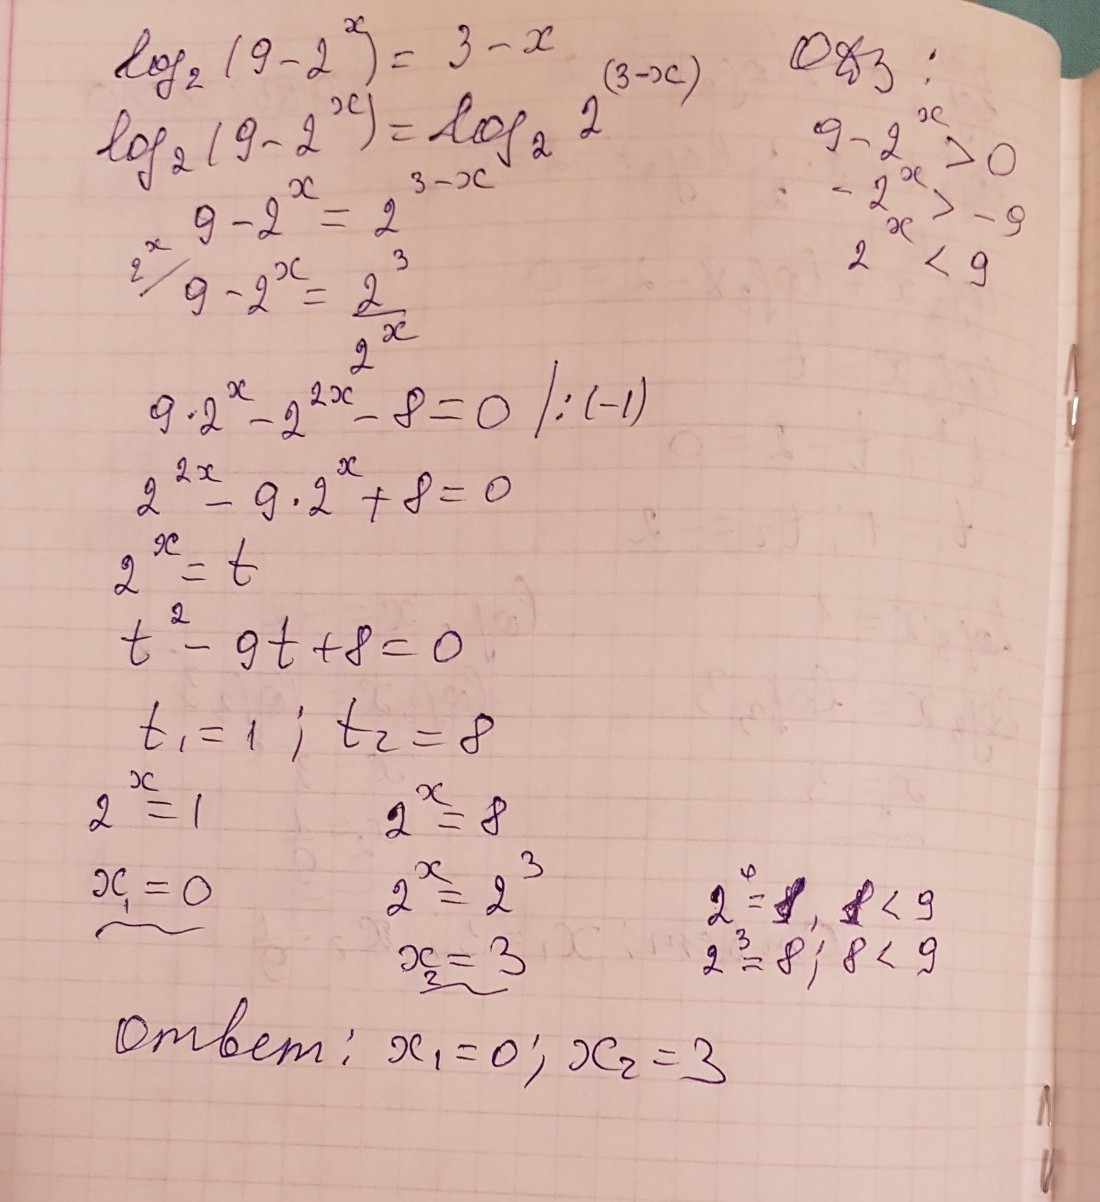 log₂(9-2ˣ) = 3-x
log₂(9-2ˣ) = log₂ 2⁽³⁻ˣ⁾
9-2ˣ = 2³⁻ˣ
2ˣ/ 9-2ˣ = 2³/2ˣ
9·2ˣ-2²ˣ-8=0 /:(-1)
2²ˣ-9·2ˣ+8=0
2ˣ=t
t²-9t+8=0
t₁=1; t₂=8
2ˣ=1 2ˣ=8
x₁=0 2ˣ=2³
x₂=3
ОДЗ:
9-2ˣ>0
-2ˣ>-9
2ˣ<9
2⁰=1, 1<9
2³=8; 8<9
Ответ: x₁=0; x₂=3